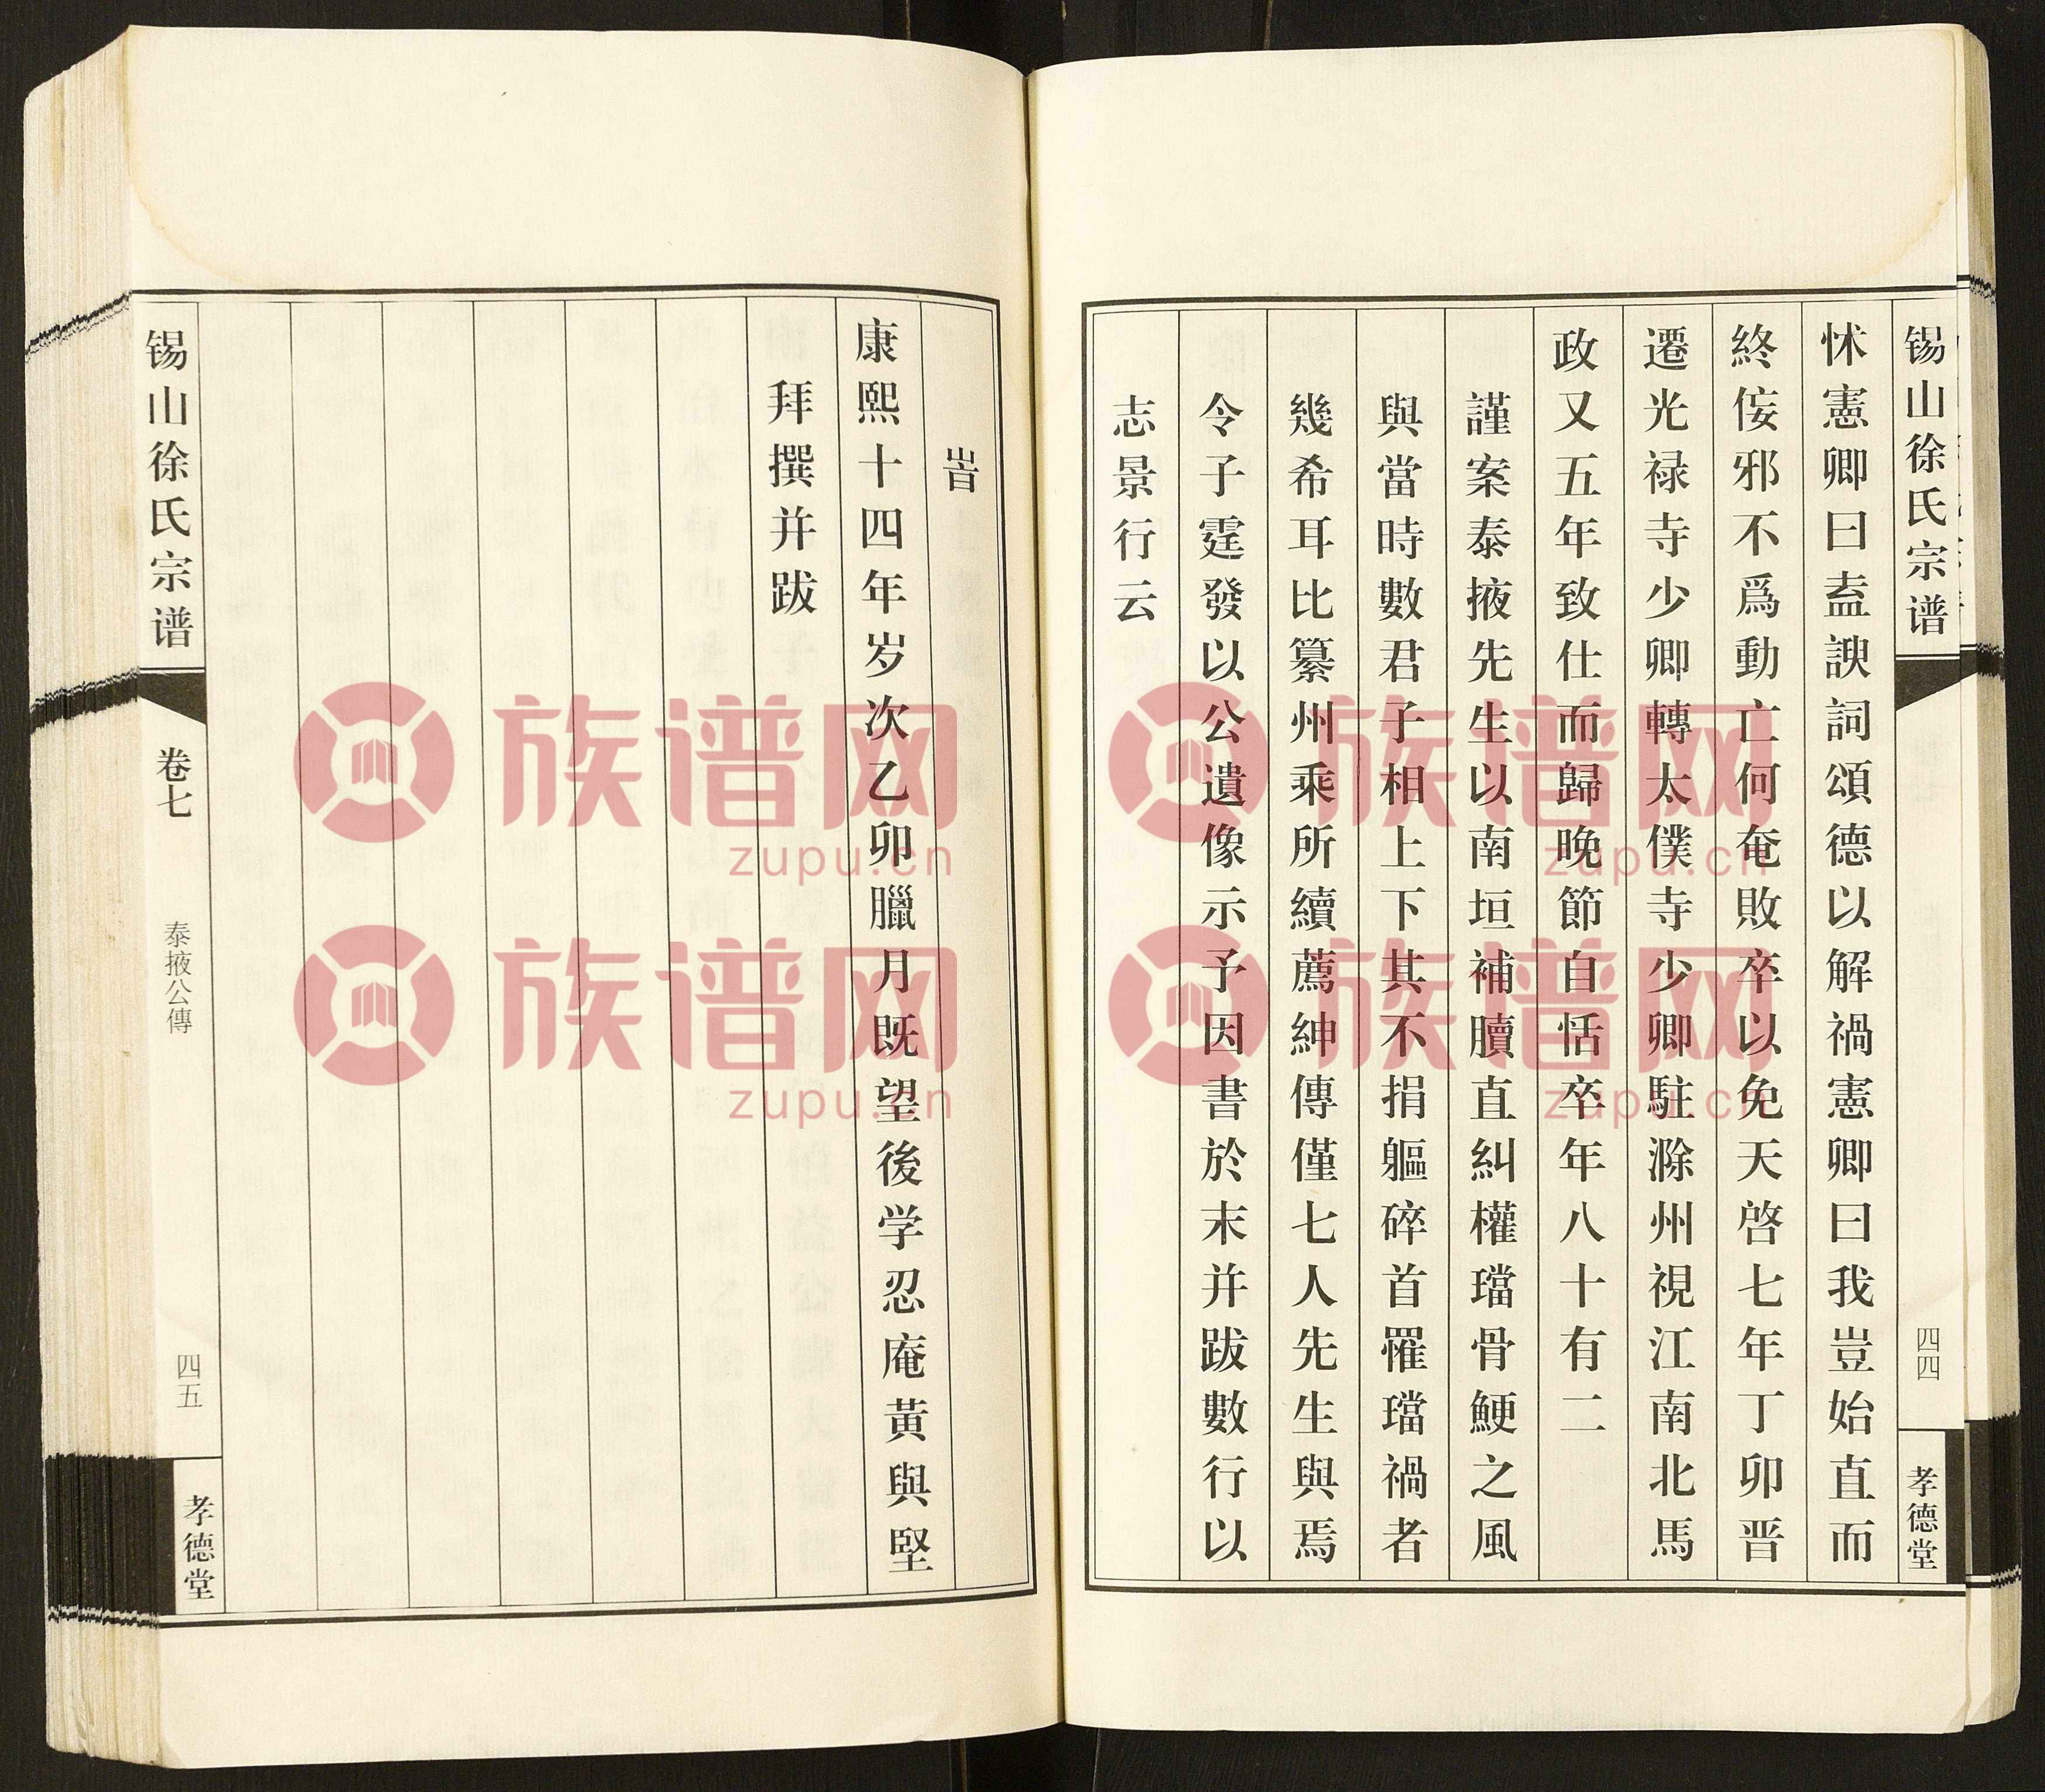 锡山徐氏宗谱
四四
孝德堂
怵憲卿曰盍諛詞頌德以解禍憲卿曰我豈始直而
終侫邪不爲動亡何奄敗卒以免天啓七年丁卯晋
遷光禄寺少卿轉太僕寺少卿駐滁州視江南北馬
政又五年致仕而歸晚節自恬卒年八十有二
謹案泰掖先生以南垣補牘直糾權璫骨鯁之風
與當時數君子相上下其不捐軀碎首罹璫禍者
幾希耳比纂州乘所續薦紳傳僅七人先生與焉
令子霆發以公遺像示予因書於末并跋數行以
志景行云
旹
康熙十四年岁次乙卯臘月既望後学忍庵黄與堅
拜撰并跋
锡山徐氏宗谱
卷七
泰掖公傳
四五
孝德堂
族谱网
zupu.cn
族谱网
zupu.cn
族谱网
zupu.cn
族谱网
zupu.cn